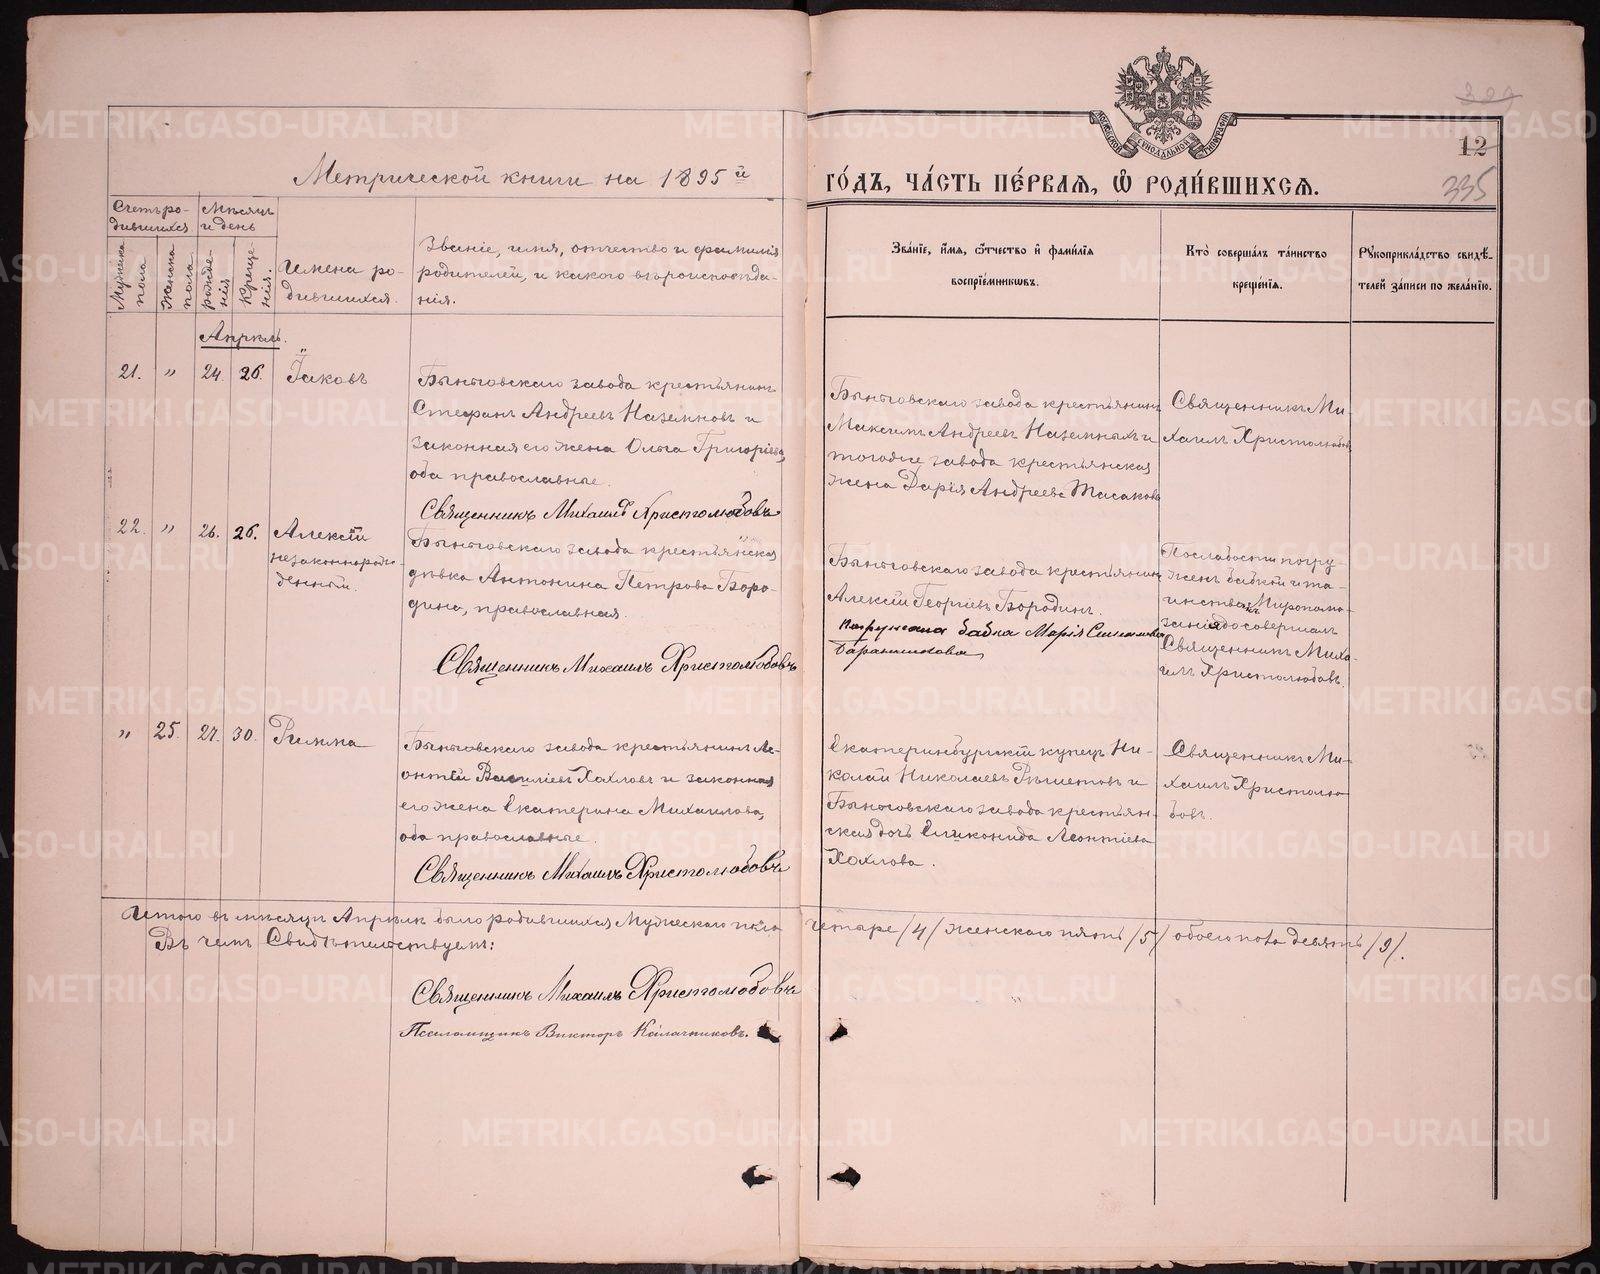 Метрической книги на 1895й
годъ, часть первая, ѡ родившихся.
12
335
Счетъ ро-
дившихся
Мѣсяцъ
и день
Мужеска
пола
Женска
пола
рожде-
нія
Креще-
нія.
Имена ро-
дившихся.
Званіе, имя, отчество и фамилія
родителей, и какого вѣроисповѣда-
нія.
Званіе, имя, отчество и фамилія
воспріемниковъ.
Кто совершалъ таинство
крещенія.
Рукоприкладство свидѣ-
телей записи по желанію.
Апрѣль.
21. " 24. 26. Іаковъ
Быньговскаго завода крестьянинъ
Стефанъ Андреевъ Наземновъ и
законная его жена Ольга Григоріева,
оба православные.
Священникъ Михаилъ Христолюбовъ
Быньговскаго завода крестьянинъ
Максимъ Андреевъ Наземныхъ и
тогоже завода крестьянская
жена Дарія Андреева
Священникъ Ми-
хаилъ Христолюбовъ
22. " 26. 26. Алексій
незаконнорож-
денный.
Быньговскаго завода крестьянская
дѣвка Антонина Петрова Боро-
дина, православная.
Священникъ Михаилъ Христолюбовъ
Быньговскаго завода крестьянинъ
Алексій Георгіевъ Бородинъ.
Погружала бабка Марія
Баранникова
По слабости погру-
женъ бабкой и та-
инство Миропома-
занія совершалъ
Священникъ Миха-
илъ Христолюбовъ.
" 25. 27. 30. Римма
Быньговскаго завода крестьянинъ Ле-
онтій Василіевъ Хохловъ и законная
его жена Екатерина Михаилова,
оба православные.
Священникъ Михаилъ Христолюбовъ
Екатеринбургскій купецъ Ни-
колай Николаевъ Рѣшетовъ и
Быньговскаго завода крестьян-
ская дочь Еликонида Леонтіева
Хохлова.
Священникъ Ми-
хаилъ Христолю-
бовъ.
Итого въ мѣсяцѣ Апрѣлѣ было родившихся Мужескаго пола четыре /4/ женскаго пять /5/ обоего пола девять /9/.
Въ чемъ Свидѣтельствуемъ:
Священникъ Михаилъ Христолюбовъ
Псаломщикъ Викторъ Калачниковъ.
METRIKI.GASO-URAL.RU